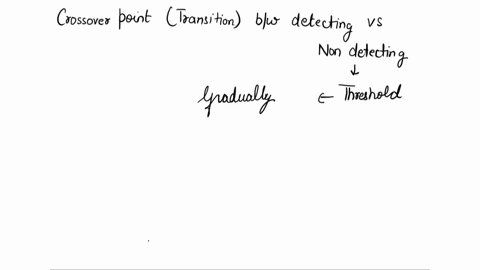 Crossover point (Transition) b/w detecting vs
Non detecting
↓
Gradually ← Threshold